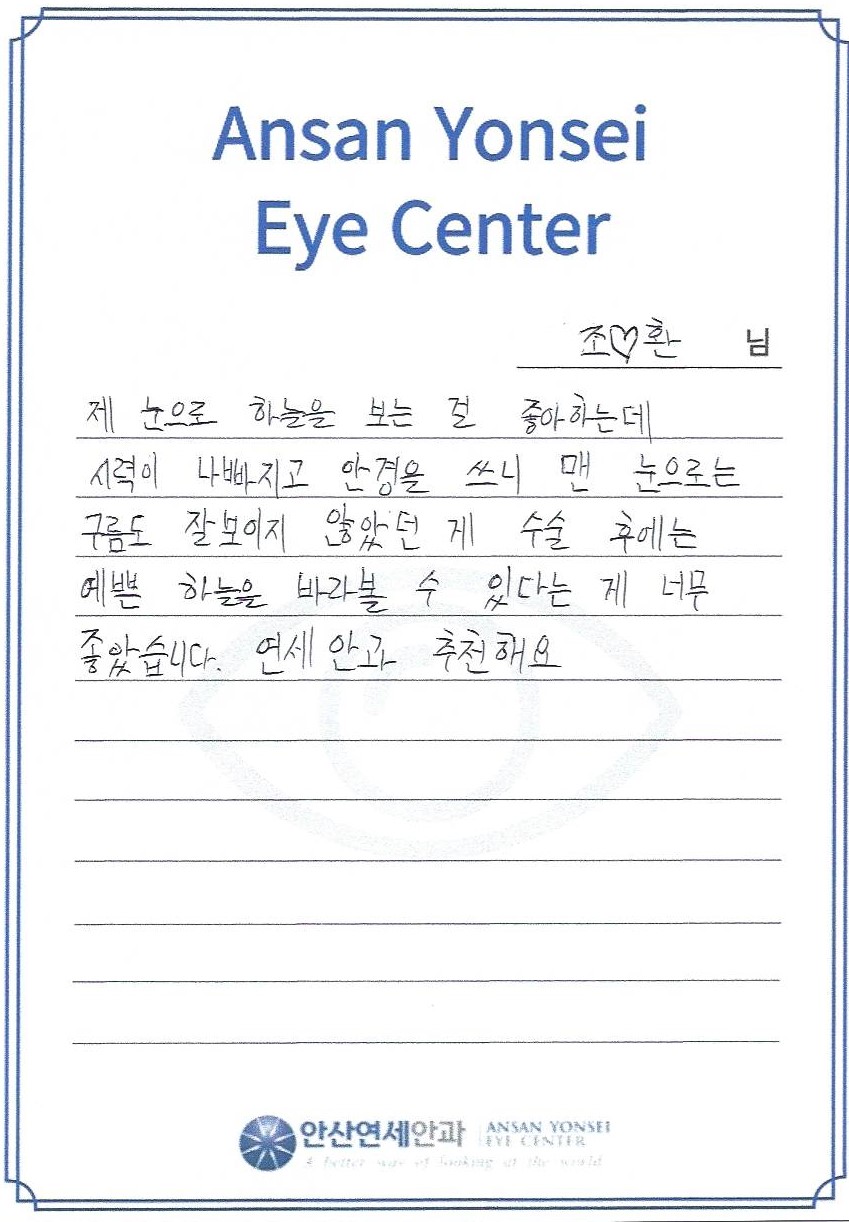 Ansan Yonsei
Eye Center
조♡환 님
제 눈으로 하늘을 보는 걸 좋아하는데
시력이 나빠지고 안경을 쓰니 맨 눈으로는
구름도 잘보이지 않았던 게 수술 후에는
예쁜 하늘을 바라볼 수 있다는 게 너무
좋았습니다. 연세 안과 추천해요
안산연세안과 ANSAN YONSEI
EYE CENTER
A better way of looking at the world